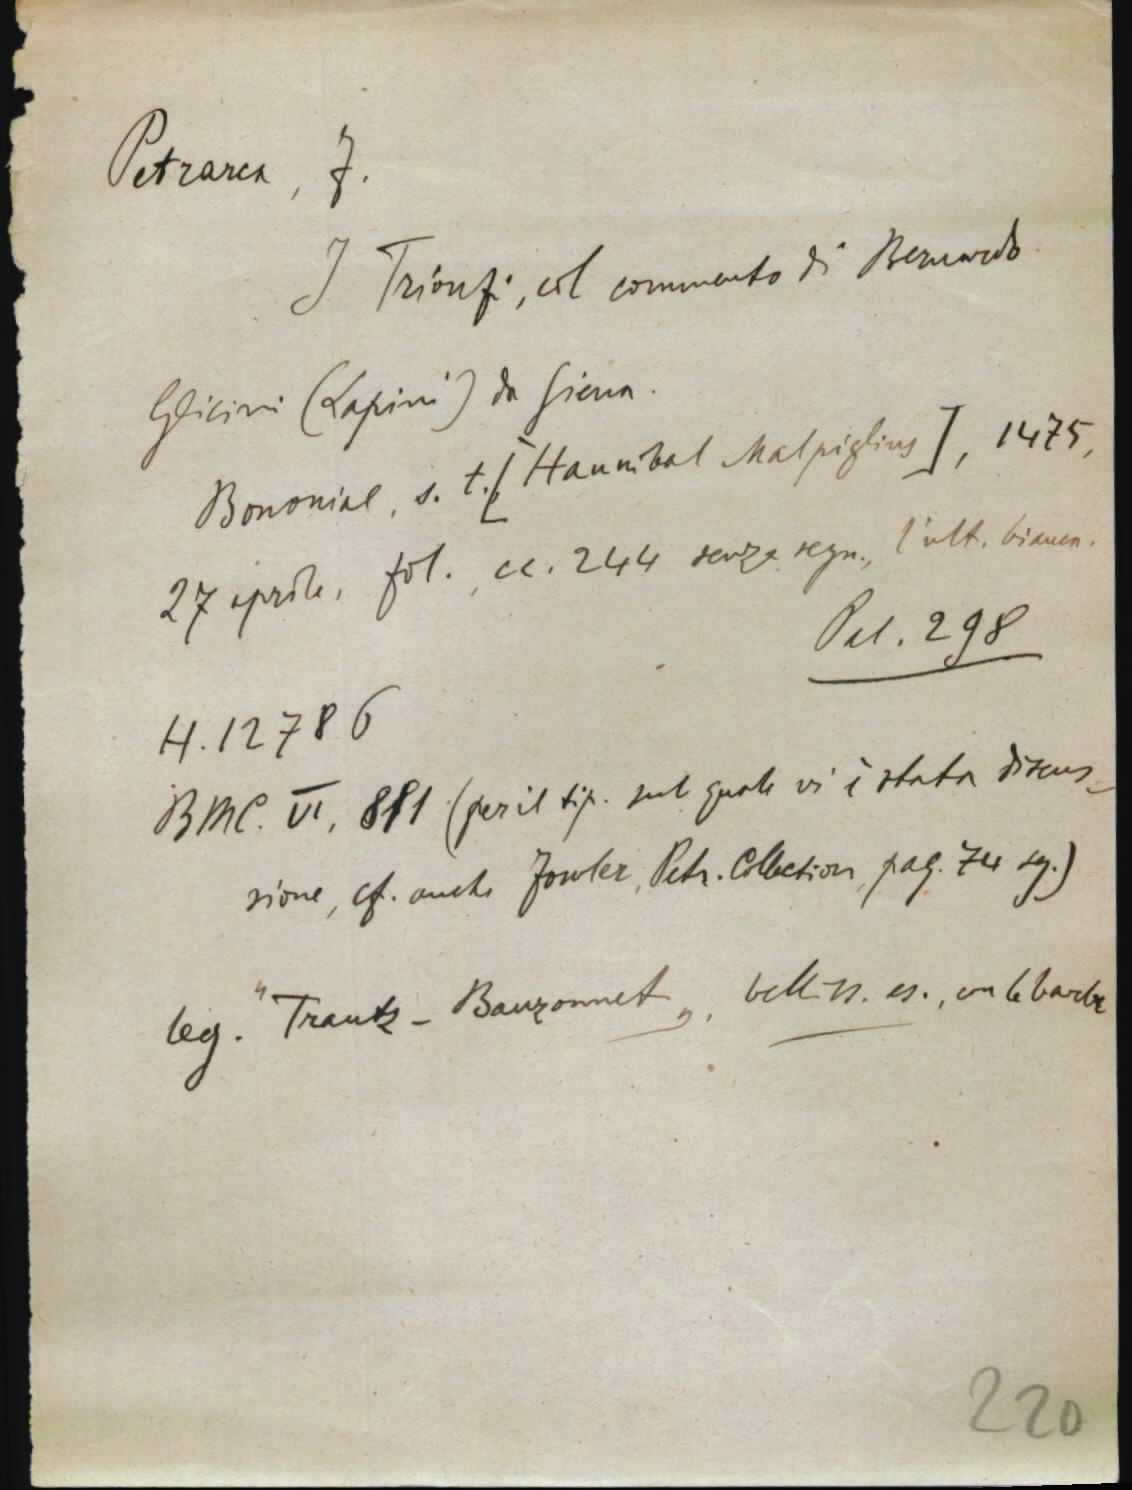 Petrarca, F.
I Trionfi, col commento di Bernardo
Glicini (Lapini) da Siena.
Bononiae, s. t. [Hannibal Malpiglius], 1475,
27 aprile, fol., cc. 244 senza segn., l'ult. bianca.
Pal. 298
H. 12786
BMC. VI, 811 (per il tip. sul quale vi è stata discus-
sione, cf. anche Fowler, Petr. Collection, pag. 74 sg.)
leg. "Trautz - Bauzonnet", belliss. es., con le barbe
220